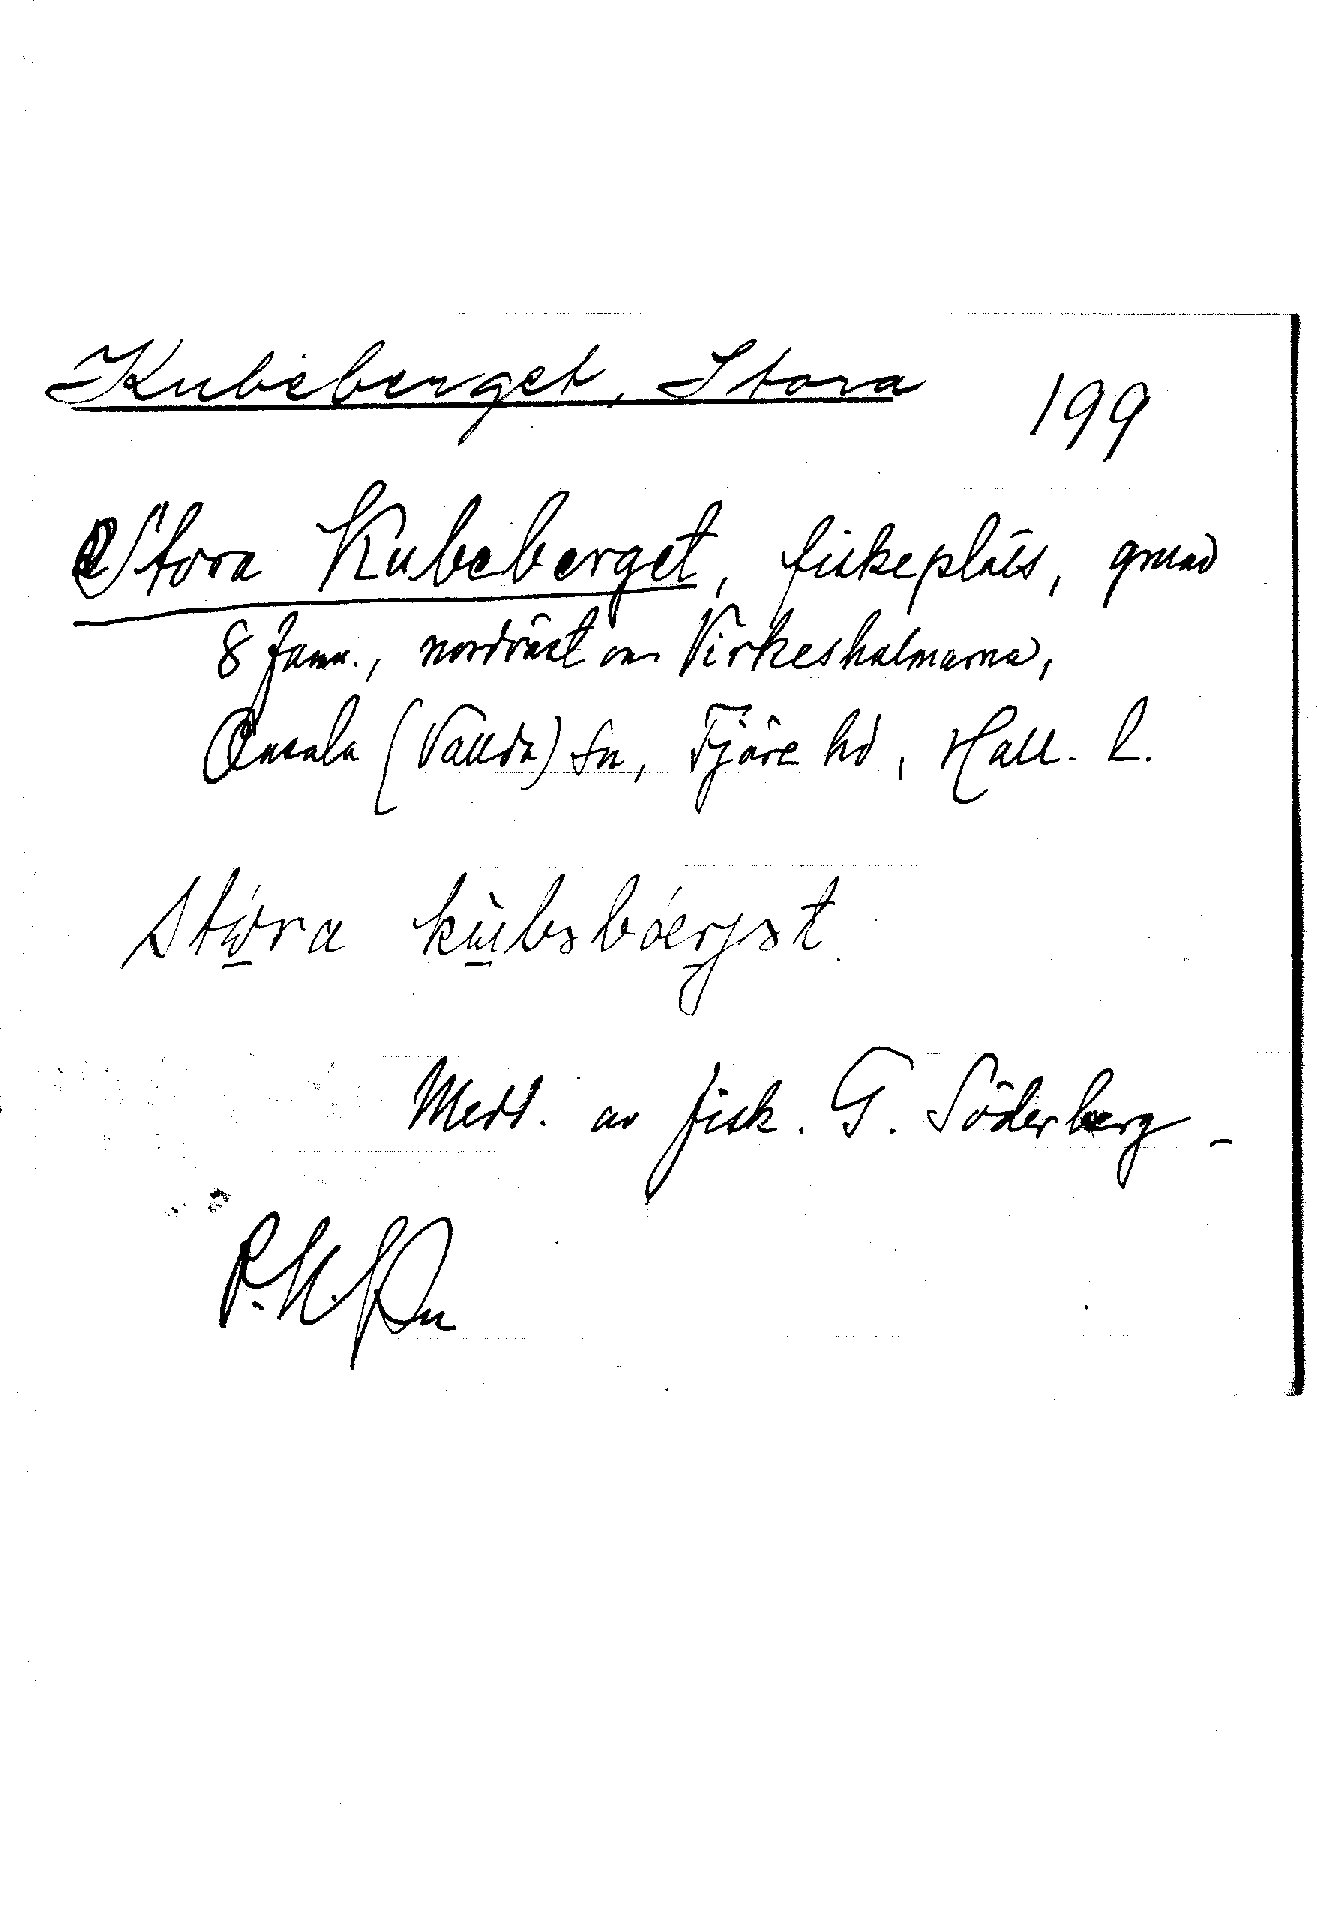 Kubeberget, Stora 199
Stora Kubeberget, fiskeplats, grund
8 famn., nordväst om Virkesholmarna,
Onsala (Vallda) sn, Fjäre hd, Hall. l.
Medd. av fisk. G. Söderberg